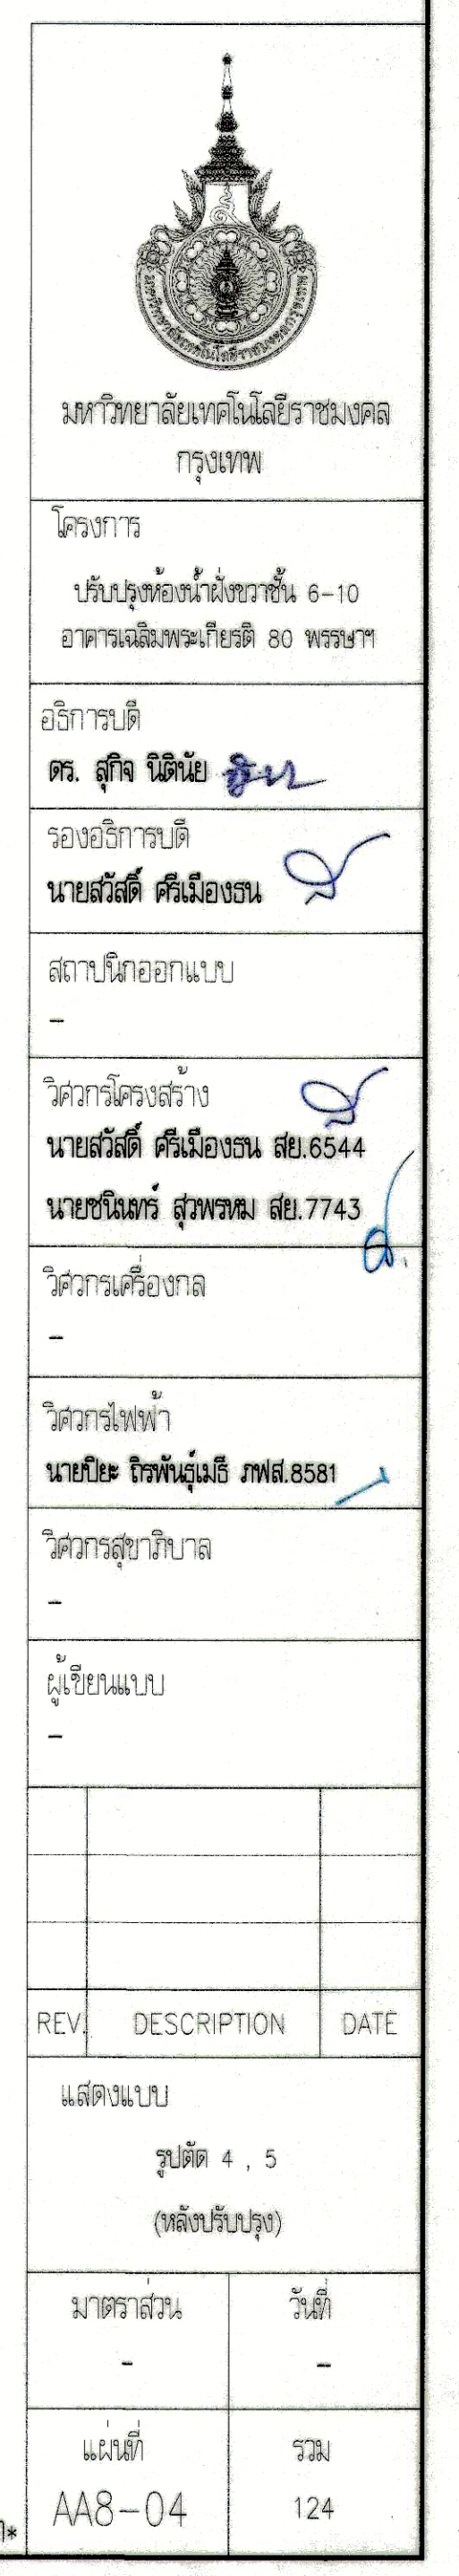 มหาวิทยาลัยเทคโนโลยีราชมงคลกรุงเทพ
มหาวิทยาลัยเทคโนโลยีราชมงคล
กรุงเทพ
โครงการ
ปรับปรุงห้องน้ำฝั่งขวาชั้น 6-10
อาคารเฉลิมพระเกียรติ 80 พรรษาฯ
อธิการบดี
ดร. สุกิจ นิตินัย
รองอธิการบดี
นายสวัสดิ์ ศรีเมืองธน
สถาปนิกออกแบบ
-
วิศวกรโครงสร้าง
นายสวัสดิ์ ศรีเมืองธน สย.6544
นายชนินทร์ สุวพรหม สย.7743
วิศวกรเครื่องกล
-
วิศวกรไฟฟ้า
นายปิยะ ถิรพันธุ์เมธี ภฟส.8581
วิศวกรสุขาภิบาล
-
ผู้เขียนแบบ
-
REV. DESCRIPTION DATE
แสดงแบบ
รูปตัด 4 , 5
(หลังปรับปรุง)
มาตราส่วน วันที่
- -
แผ่นที่ รวม
AA8-04 124